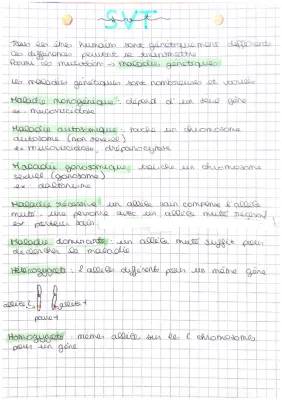 SVT
Tous les êtres humain sont génétiquement différents
ces différences peuvent se transmettre
Parmi les mutations → maladies génétiques
Les maladies génétiques sont nombreuses et variées
Maladie monogénique : dépend d'un seul gène
ex : mucoviscidose
Maladie autosomique : touche un chromosome
autosome (non sexuel)
ex mucoviscidose, drépanocytose
Maladie gonosomique : touche un chromosome
sexuel (gonosome)
ex : daltonisme
Maladie récessive : un allèle sain compense l'allèle
muté : une personne avec un allèle muté
ex : porteur sain
Maladie dominante : un allèle muté suffit pour
déclencher la maladie
Hétérozygote : 2 allèles différents pour un même gène
allèle 1 allèle 2
paire 1
Homozygote : mêmes allèles sur les 2 chromosomes
pour un gène